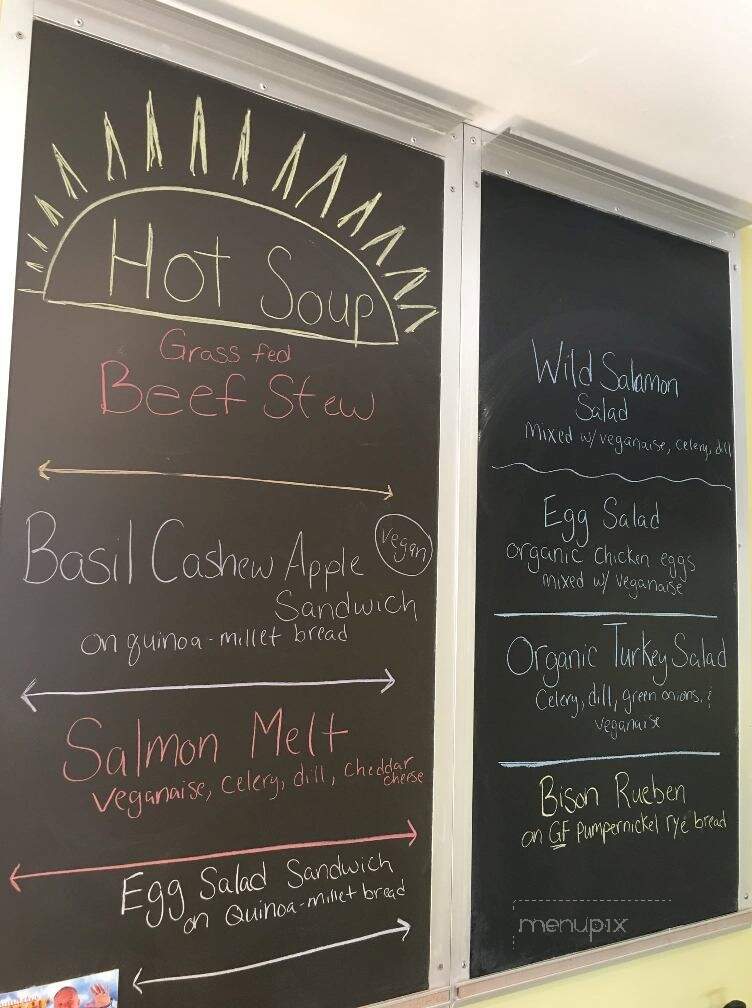 Hot Soup
Grass fed
Beef Stew
Basil Cashew Apple
Vegan
Sandwich
on quinoa-millet bread
Salmon Melt
Veganaise, celery, dill, cheddar
cheese
Egg Salad Sandwich
on Quinoa-millet bread
Wild Salamon
Salad
mixed w/ veganaise, celery, dill
Egg Salad
organic chicken eggs
mixed w/ veganaise
Organic Turkey Salad
Celery, dill, green onions, &
veganaise
Bison Rueben
on GF pumpernickel rye bread
menupix